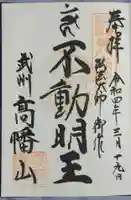 奉拝
令和四年三月十九日
弘法大師 御作
不動明王
武州 高幡山